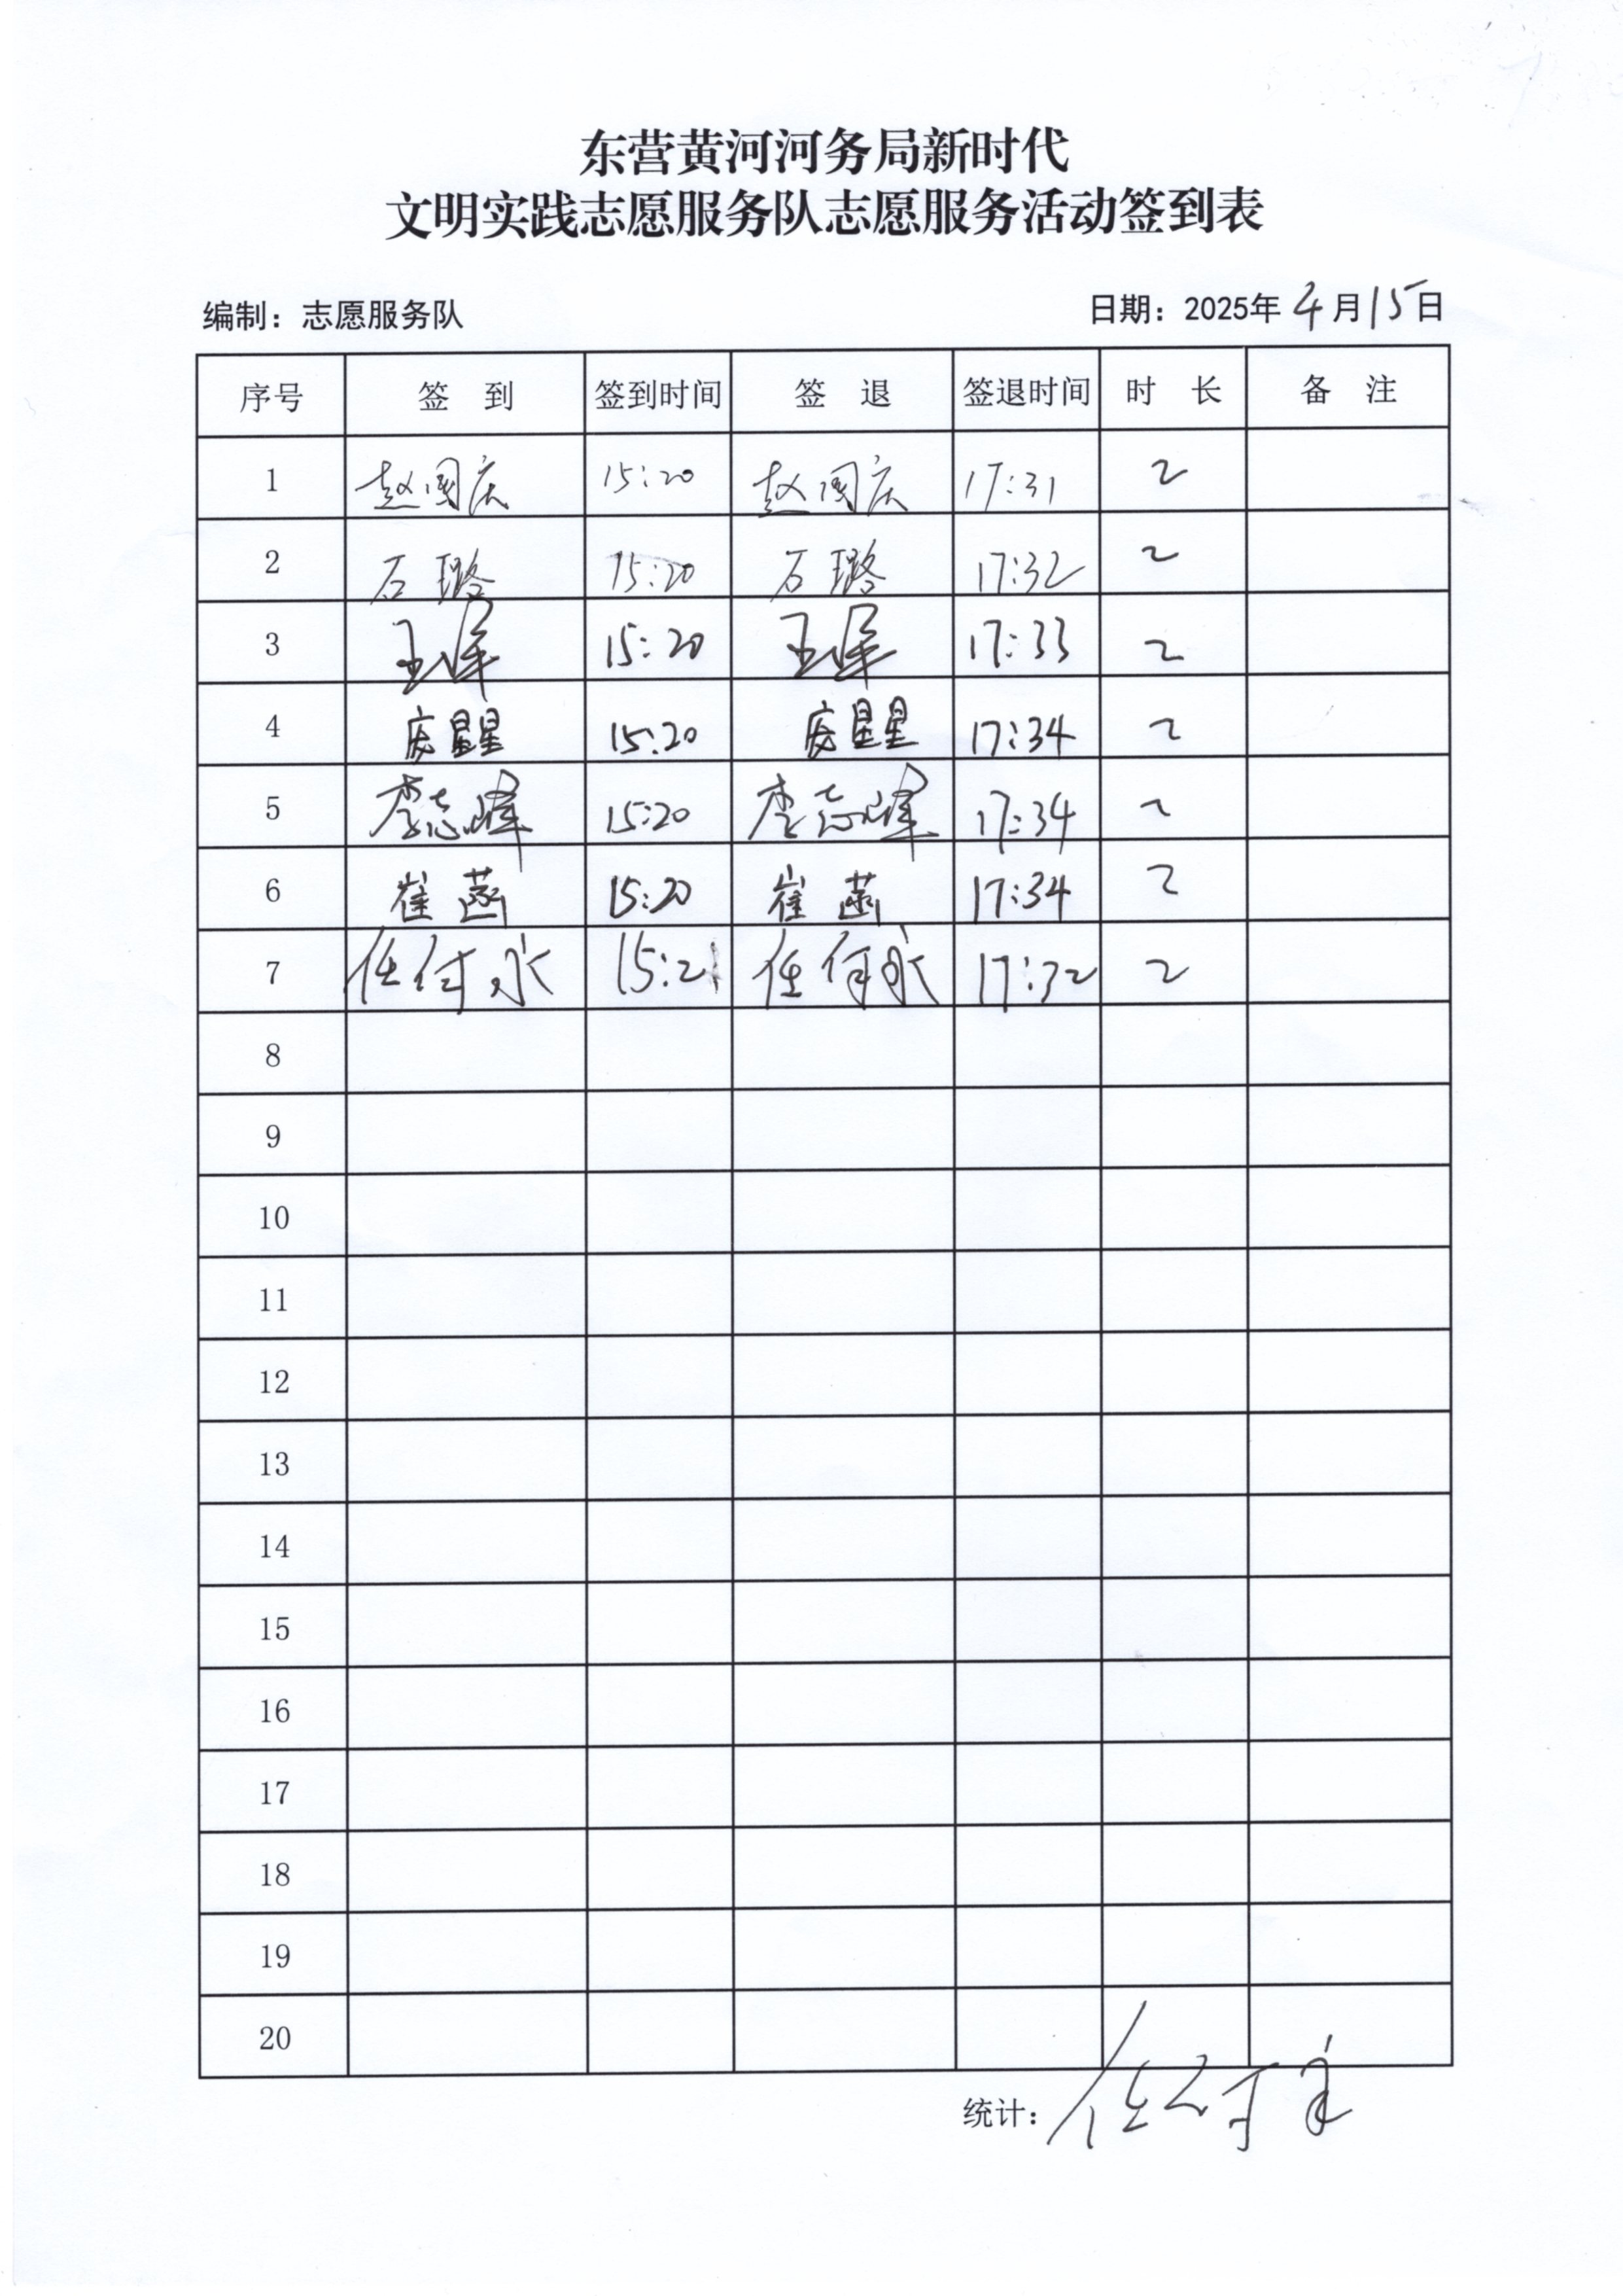 东营黄河河务局新时代
文明实践志愿服务队志愿服务活动签到表
编制：志愿服务队 日期：2025年4月15日
序号 签到 签到时间 签退 签退时间 时长 备注
1 赵国庆 15:20 赵国庆 17:31 2
2 石璐 15:20 石璐 17:32 2
3 15:20 17:33 2
4 星星 15:20 星星 17:34 2
5 李志峰 15:20 李志峰 17:34 2
6 崔菡 15:20 崔菡 17:34 2
7 任 15:21 任 17:32 2
8
9
10
11
12
13
14
15
16
17
18
19
20
统计：